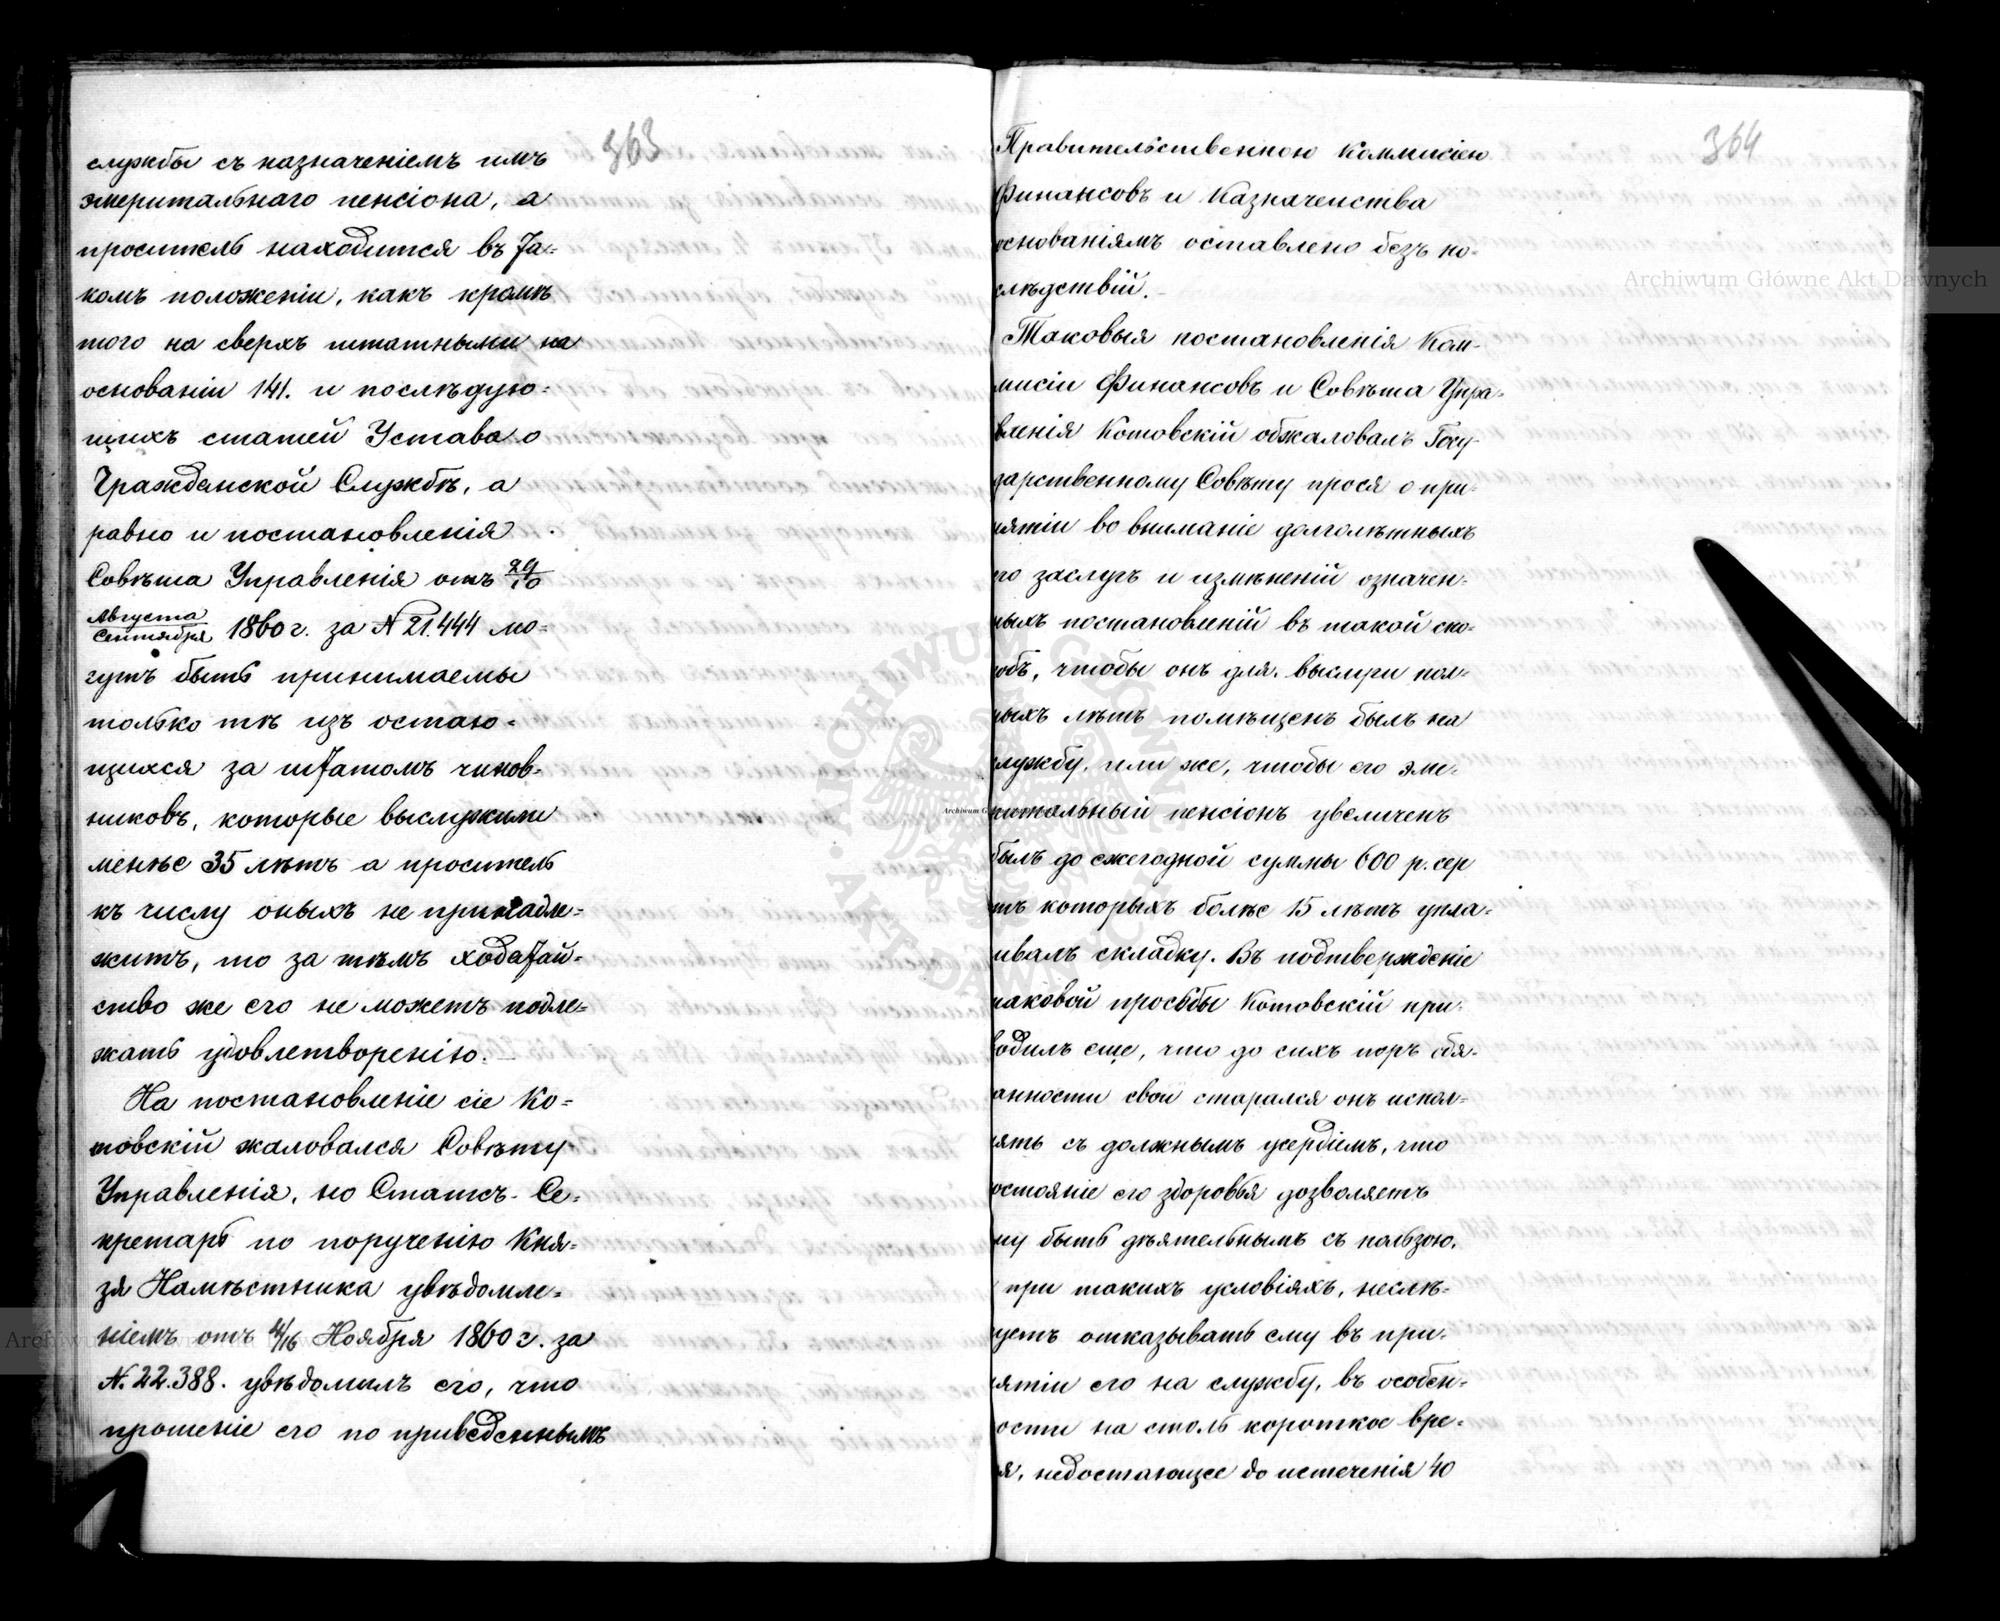 363
службы съ назначеніемъ имъ
эмеритальнаго пенсіона, а
проситель находится въ та=
комъ положеніи, какъ кромѣ
того на сверхъ штатными на
основаніи 141. и послѣдую=
щихъ статей Устава о
Гражданской Службѣ, а
равно и постановленія
Совѣта Управленія отъ 29/10
Августа/Сентября 1860 г. за N 21.444 мо=
гутъ быть принимаемы
только тѣ изъ остаю=
щихся за штатомъ чинов=
никовъ, которые выслужили
менѣе 35 лѣтъ а проситель
къ числу оныхъ не принадле=
житъ, то за тѣмъ ходатай=
ство же его не можетъ подле=
жать удовлетворенію.
На постановленіе сіе Ко=
товскій жаловался Совѣту
Управленія, но Статсъ-Се=
кретарь по порученію Кня=
зя Намѣстника увѣдомле=
ніемъ отъ 4/16 Ноября 1860 г. за
N. 22.388. увѣдомилъ его, что
прошеніе его по приведеннымъ
364
Правительственною Коммисіею
Финансовъ и Казначейства
основаніямъ оставлено безъ по=
слѣдствій.
Таковыя постановленія Ком=
мисіи Финансовъ и Совѣта Упра=
вленія Котовскій обжаловалъ Госу=
дарственному Совѣту прося о при=
нятіи во вниманіе долголѣтныхъ
го заслугъ и измѣненій означен=
ныхъ постановленій въ такой спо=
собъ, чтобы онъ для выслуги пол=
ныхъ лѣтъ помѣщенъ былъ на
службу, или же, чтобы его эме=
ритальный пенсіонъ увеличенъ
былъ до ежегодной суммы 600 р. сер
тъ которыхъ болѣе 15 лѣтъ упла=
ивалъ складку. Въ подтвержденіе
таковой просьбы Котовскій при=
водилъ еще, что до сихъ поръ обя=
анности свои старался онъ испол=
нять съ должнымъ усердіемъ, что
остояніе его здоровья дозволяетъ
му быть дѣятельнымъ съ пользою,
при такихъ условіяхъ, неслѣ=
уетъ отказывать ему въ при=
нятіи его на службу, въ особен=
ости на столь короткое вре=
я, недостающее до истеченія 40
Archiwum Główne Akt Dawnych
ARCHIWUM GŁÓWNE AKT DAWNYCH